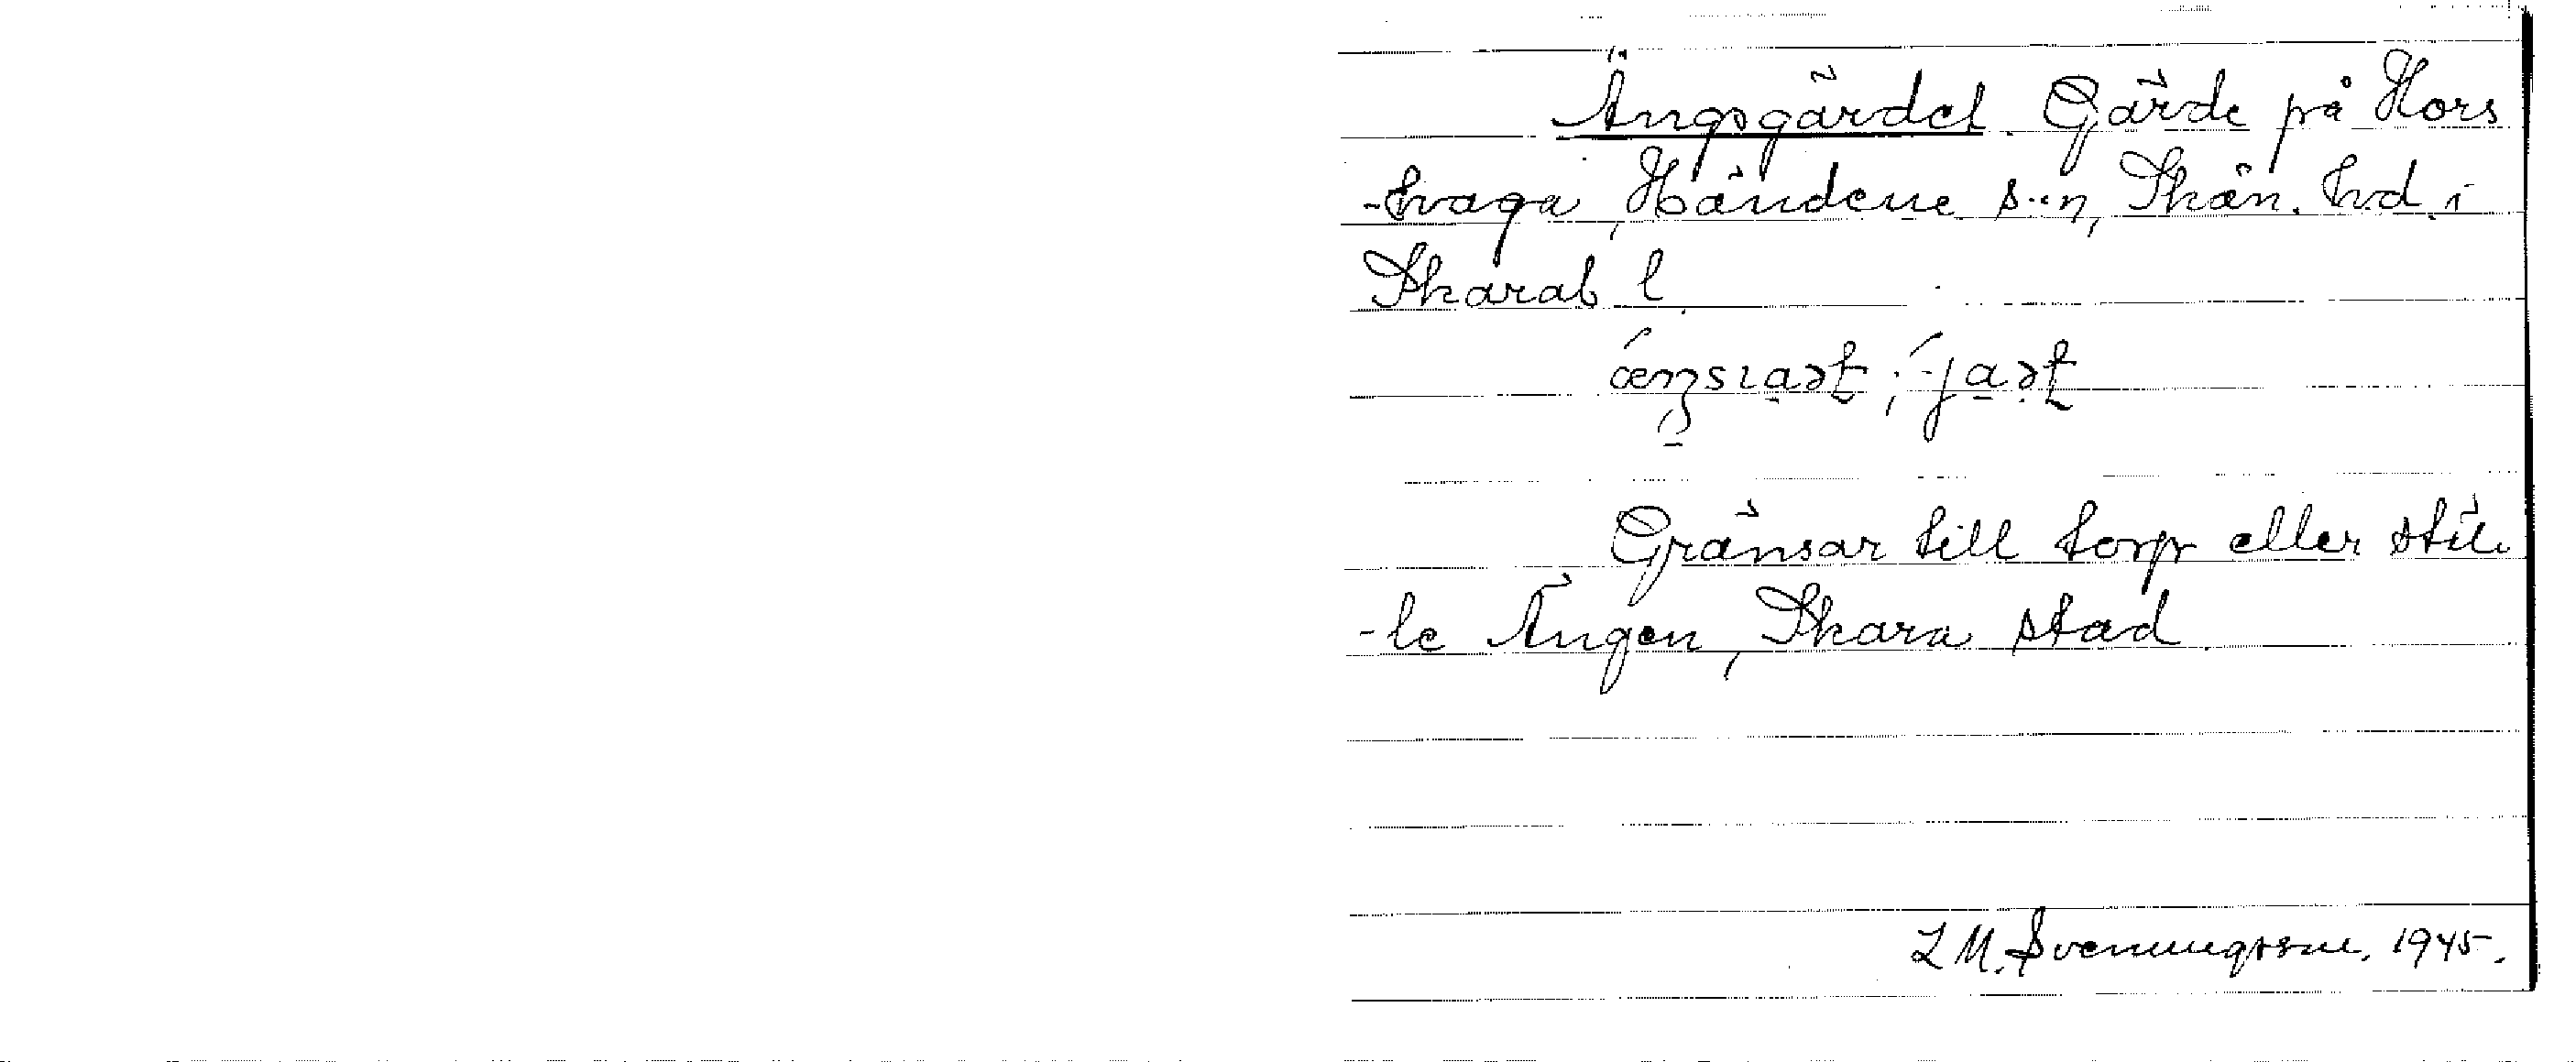 Ängsgärdet. Gärde på Hors
-tvaga, Händene s:n, Skän. hd. i
Skarab. l.
Gränsar till torp eller stäl-
-le Ängen, Skara stad.
L M. Svenungsson. 1945.